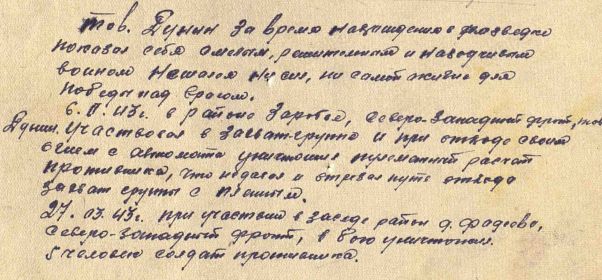 Тов. Дунин за время нахождения в разведке
показал себя смелым, решительным и находчивым
воином не жалея ни сил, ни самой жизни для
победы над врагом.
6. II. 43 г. в районе Заробья, Северо-Западный фронт, тов.
Дунин участвовал в захват-группе и при отходе своим
огнем с автомата уничтожил пулеметный расчет
противника, что и отрезал путь отхода
захват группы с пленным.
27. 03. 43 г. при участии в засаде район д. Фадеево,
Северо-Западный фронт, в бою уничтожил
5 человек солдат противника.